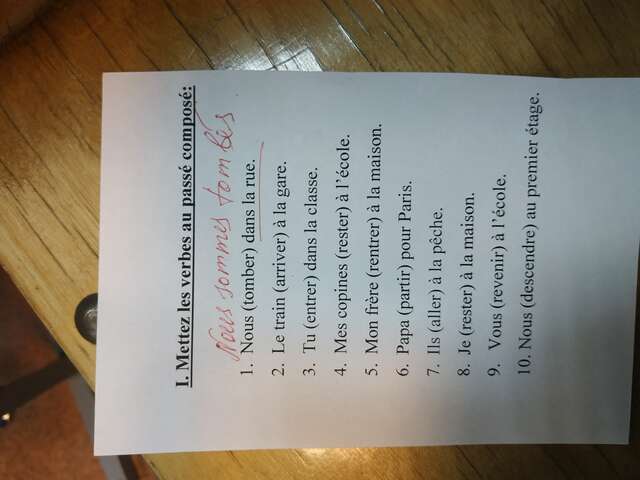 I. Mettez les verbes au passé composé:
Nous sommes tombés
1. Nous (tomber) dans la rue.
2. Le train (arriver) à la gare.
3. Tu (entrer) dans la classe.
4. Mes copines (rester) à l'école.
5. Mon frère (rentrer) à la maison.
6. Papa (partir) pour Paris.
7. Ils (aller) à la pêche.
8. Je (rester) à la maison.
9. Vous (revenir) à l'école.
10. Nous (descendre) au premier étage.